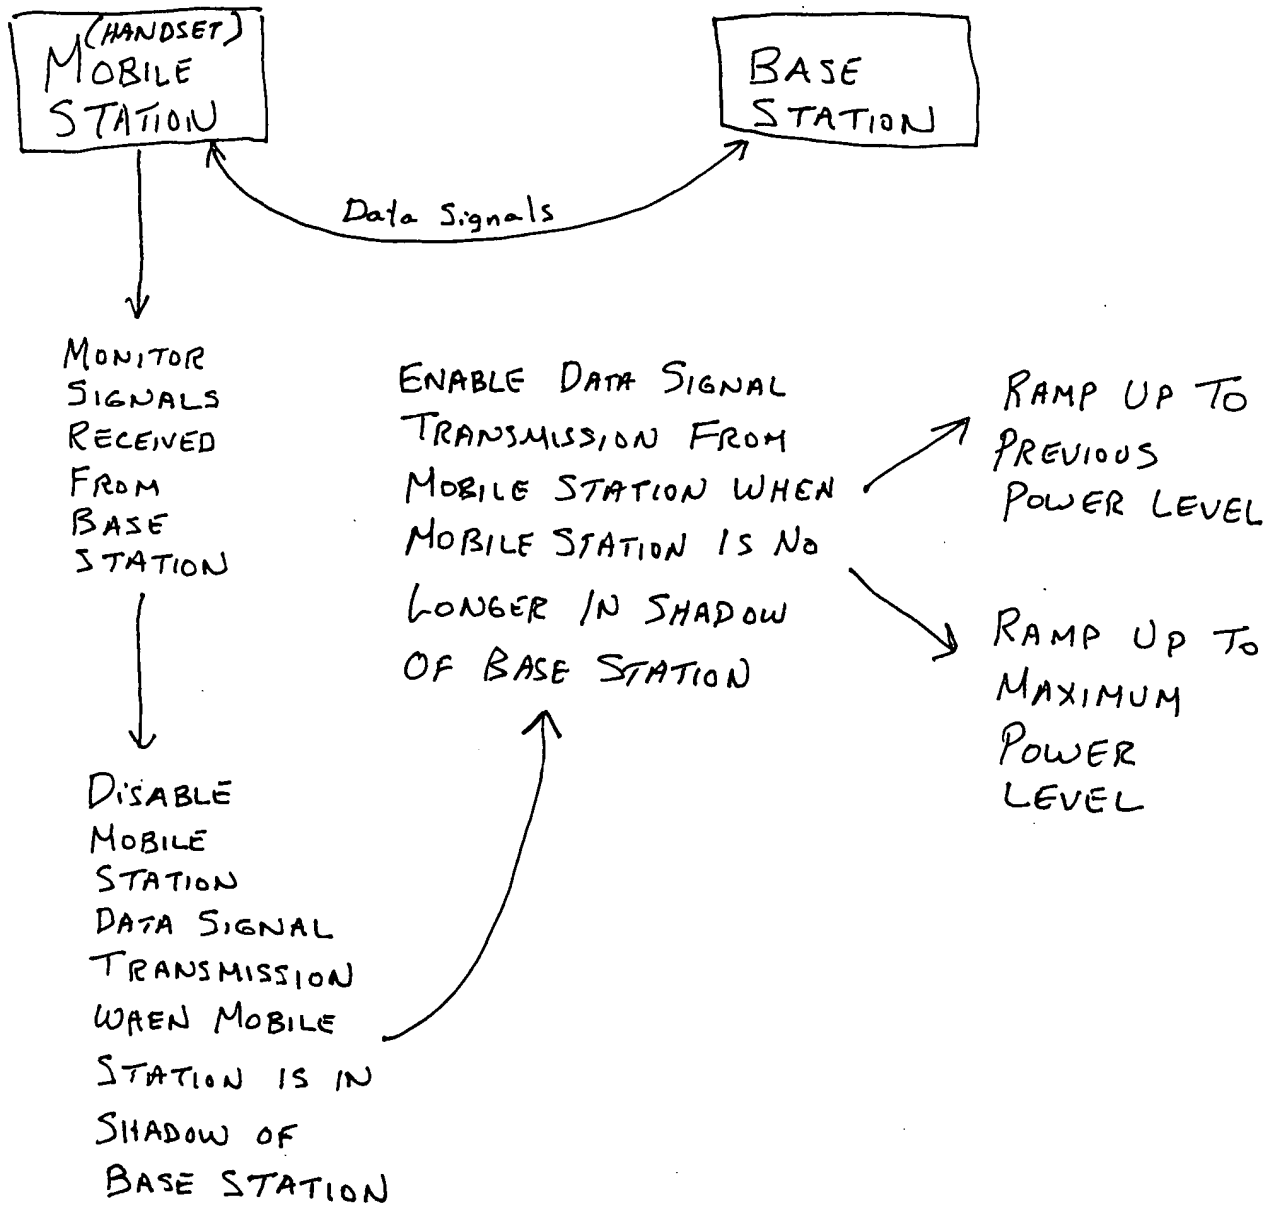 (HANDSET)
MOBILE
STATION
BASE
STATION
Data Signals
MONITOR
SIGNALS
RECEIVED
FROM
BASE
STATION
DISABLE
MOBILE
STATION
DATA SIGNAL
TRANSMISSION
WHEN MOBILE
STATION IS IN
SHADOW OF
BASE STATION
ENABLE DATA SIGNAL
TRANSMISSION FROM
MOBILE STATION WHEN
MOBILE STATION IS NO
LONGER IN SHADOW
OF BASE STATION
RAMP UP TO
PREVIOUS
POWER LEVEL
RAMP UP TO
MAXIMUM
POWER
LEVEL